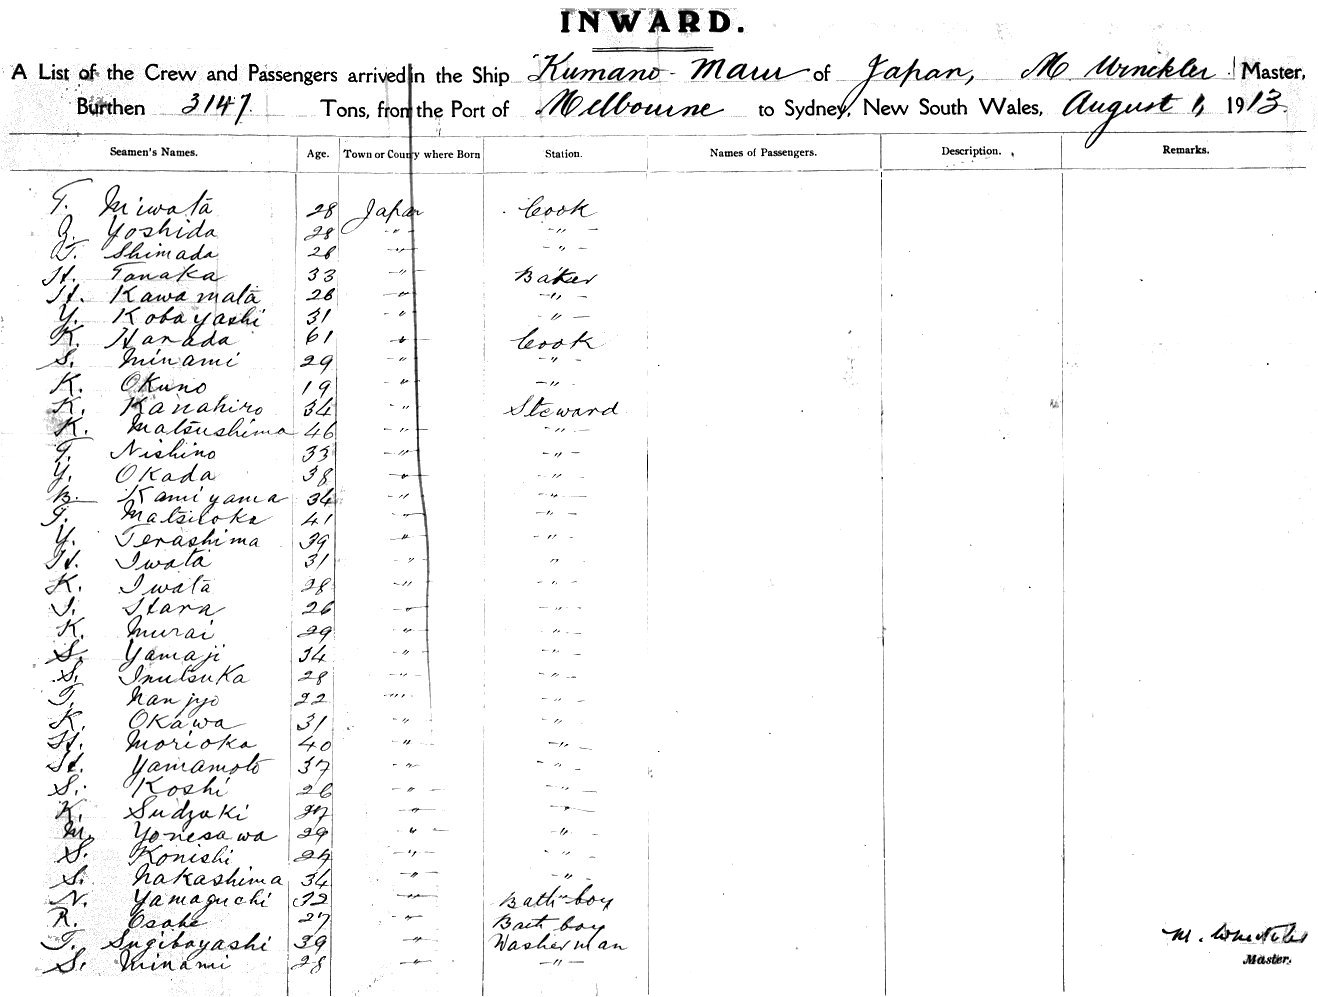 INWARD.
A List of the Crew and Passengers arrived in the Ship "Kumano Maru of Japan, M Winckler Master,
Burthen 3147 Tons, from the Port of Melbourne to Sydney, New South Wales, August 1, 1913
Seamen's Names. Age. Town or County where Born Station. Names of Passengers. Description. Remarks.
T. Miwata 28 Japan Cook
Yoshida 28 " "
T. Shimada 28 " "
H. Tanaka 33 " Baker
H. Kawamata 26 " "
Y. Kobayashi 31 " "
K. Harada 61 " Cook
S. Minami 29 " "
K. Okuno 19 " "
K. Kanahiro 34 " Steward
K. Matsushima 46 " "
T. Nishino 33 " "
Y. Okada 38 " "
B. Kamiyama 34 " "
T. Matsuoka 41 " "
Y. Terashima 39 " "
H. Iwata 31 " "
K. Iwata 28 " "
Hara 26 " "
K. Murai 29 " "
S. Yamaji 34 " "
S. Inutsuka 28 " "
T. Nanjyo 22 " "
K. Okawa 31 " "
H. Morioka 40 " "
H. Yamamoto 37 " "
S. Koshi 26 " "
K. Sudzuki 27 " "
M. Yonesawa 29 " "
S. Konishi 24 " "
S. Nakashima 34 " "
N. Yamaguchi 32 " Bath boy
R. Osabe 27 " Bath boy
T. Sugibayashi 39 " Washerman
S. Minami 28 " "
M. Winckler
Master.